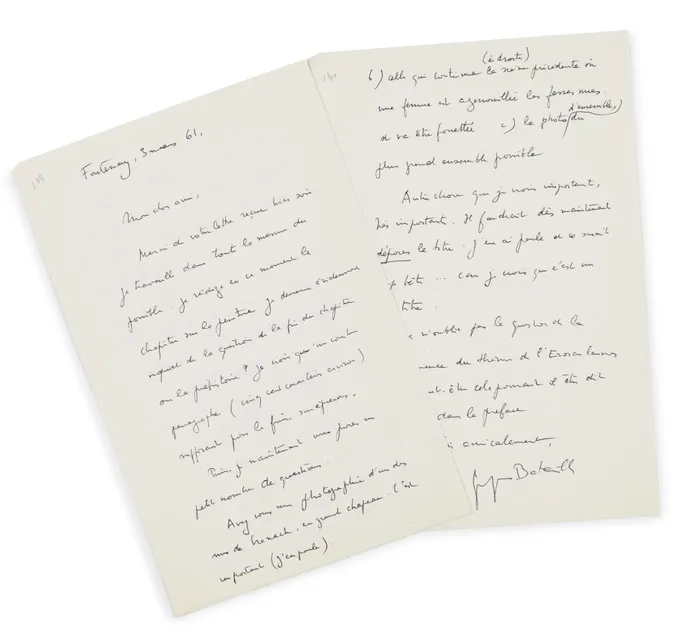 129
Fontenay, 3 mars 61.
Mon cher ami,
Merci de votre lettre reçue hier soir
je travaille dans toute la mesure du
possible. je rédige en ce moment le
chapitre sur la peinture. je demeure évidemment
inquiet de la question de la fin du chapitre
sur la préhistoire? je crois que un court
paragraphe (cinq cent caractères environ)
suffirait pour la finir
Puis-je maintenant vous poser un
petit nombre de questions.
Avez vous une photographie d'un des
nus de Cranach, en grand chapeau. C'est
important (j'en parle).
130
(à droite)
b) celle qui continue la scène précédente où
une femme est agenouillée les fesses nues
et va être fouettée c) la photo du
d'ensemble)
plus grand ensemble possible
Autre chose que je crois important,
très important. Il faudrait dès maintenant
déposer le titre. J'en ai parlé
bête ... car je crois que c'est un
titre.
n'oublie pas la question de la
du thème de l'Eros
être cela pourrait il être dit
dans la préface
amicalement,
Georges Bataille